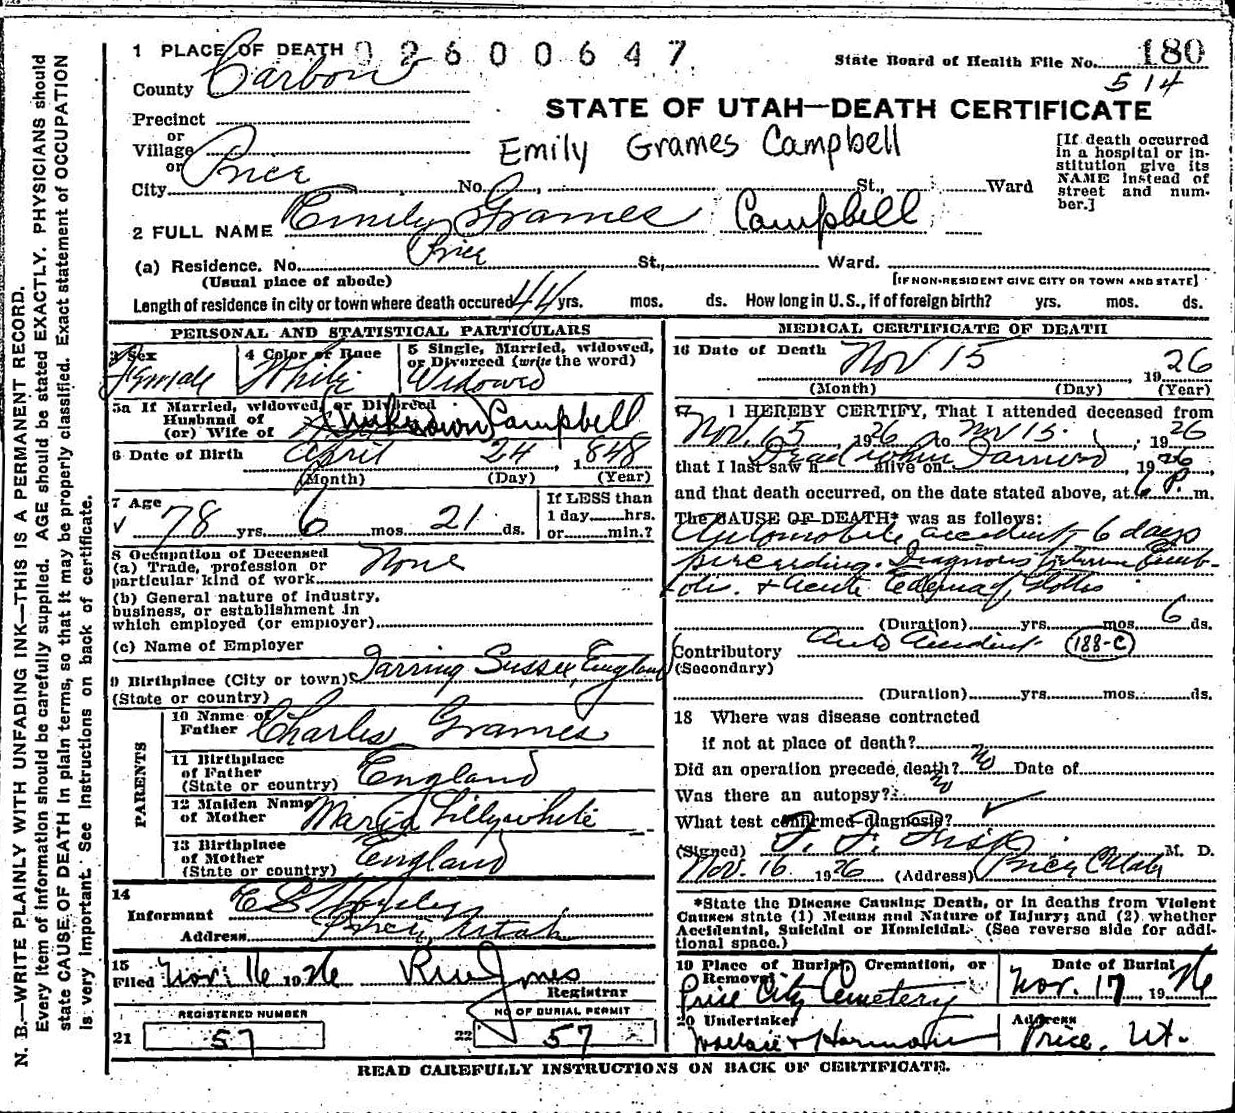 1 PLACE OF DEATH 02600647
State Board of Health File No. 180
514
County Carbon
STATE OF UTAH—DEATH CERTIFICATE
Precinct
or
Village
or
City Price No. St., Ward
Emily Grames Campbell
[If death occurred
in a hospital or in-
stitution give its
NAME instead of
street and num-
ber.]
2 FULL NAME Emily Grames Campbell
(a) Residence. No. Price St., Ward.
(Usual place of abode)
[IF NON-RESIDENT GIVE CITY OR TOWN AND STATE]
Length of residence in city or town where death occured 44 yrs. mos. ds. How long in U.S., if of foreign birth? yrs. mos. ds.
PERSONAL AND STATISTICAL PARTICULARS
3 Sex
Female
4 Color or Race
White
5 Single, Married, widowed,
or Divorced (write the word)
Widowed
5a If Married, widowed, or Divorced
Husband of
(or) Wife of Unknown Campbell
6 Date of Birth April 24, 1848
(Month) (Day) (Year)
7 Age
78 yrs. 6 mos. 21 ds.
If LESS than
1 day hrs.
or min.?
8 Occupation of Deceased
(a) Trade, profession or
particular kind of work None
(b) General nature of industry,
business, or establishment in
which employed (or employer)
(c) Name of Employer
9 Birthplace (City or town) Tarring Sussex, England
(State or country)
PARENTS
10 Name of
Father Charles Grames
11 Birthplace
of Father
(State or country) England
12 Maiden Name
of Mother Maria Lillywhite
13 Birthplace
of Mother
(State or country) England
14
Informant E S
Address Price, Utah
15
Filed Nov. 16 1926
Registrar
REGISTERED NUMBER
21 57
NO OF BURIAL PERMIT
22 57
MEDICAL CERTIFICATE OF DEATH
16 Date of Death Nov 15, 1926
(Month) (Day) (Year)
17 I HEREBY CERTIFY, That I attended deceased from
Nov. 15, 1926 to Nov 15, 1926
that I last saw h alive on Dead when I arrived, 1926,
and that death occurred, on the date stated above, at 6 P. m.
The CAUSE OF DEATH* was as follows:
Automobile accident 6 days
preceding. Diagnosis between Emb-
olis. & Acute Edema of Glottis
(Duration) yrs. mos. 6 ds.
Contributory Auto Accident 188-C
(Secondary)
(Duration) yrs. mos. ds.
18 Where was disease contracted
if not at place of death?
Did an operation precede death? no Date of
Was there an autopsy? no
What test confirmed diagnosis?
(Signed) F. F. Fisk M. D.
Nov. 16 1926 (Address) Price Utah
*State the Disease Causing Death, or in deaths from Violent
Causes state (1) Means and Nature of Injury; and (2) whether
Accidental, Suicidal or Homicidal. (See reverse side for addi-
tional space.)
19 Place of Burial, Cremation, or
Removal
Price City Cemetery
Date of Burial
Nov. 17, 1926
20 Undertaker
Wallace & Harmon
Address
Price, Ut.
READ CAREFULLY INSTRUCTIONS ON BACK OF CERTIFICATE.
N. B.—WRITE PLAINLY WITH UNFADING INK—THIS IS A PERMANENT RECORD.
Every item of information should be carefully supplied. AGE should be stated EXACTLY. PHYSICIANS should
state CAUSE OF DEATH in plain terms, so that it may be properly classified. Exact statement of OCCUPATION
is very important. See instructions on back of certificate.